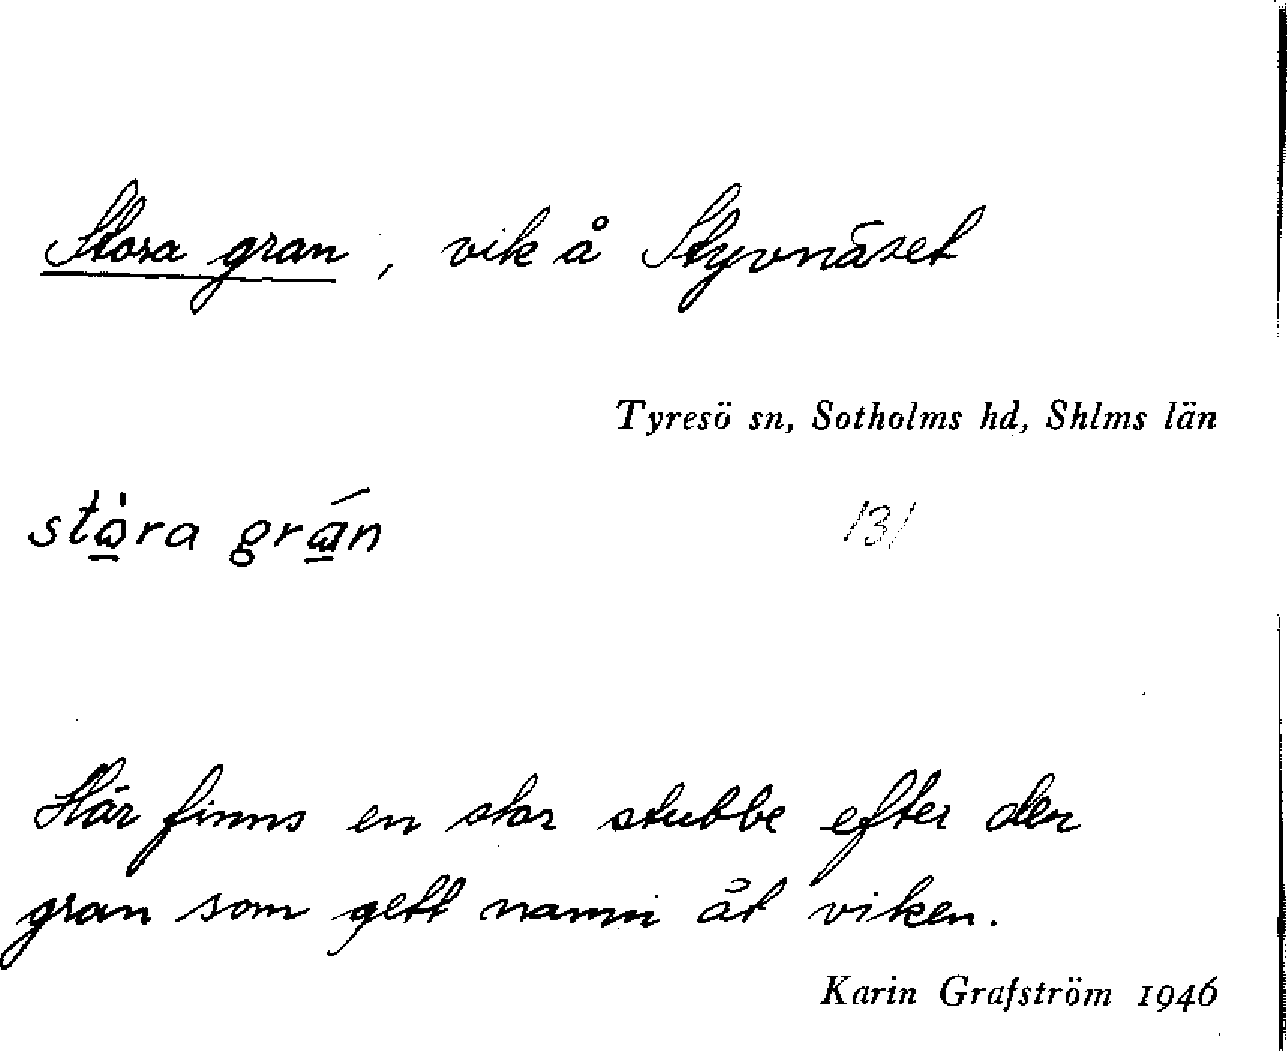 Stora gran, vik å Styvnäset
Tyresö sn, Sotholms hd, Shlms län
stòra grán /3/
Här finns en stor stubbe efter den
gran som gett namn åt viken.
Karin Grafström 1946